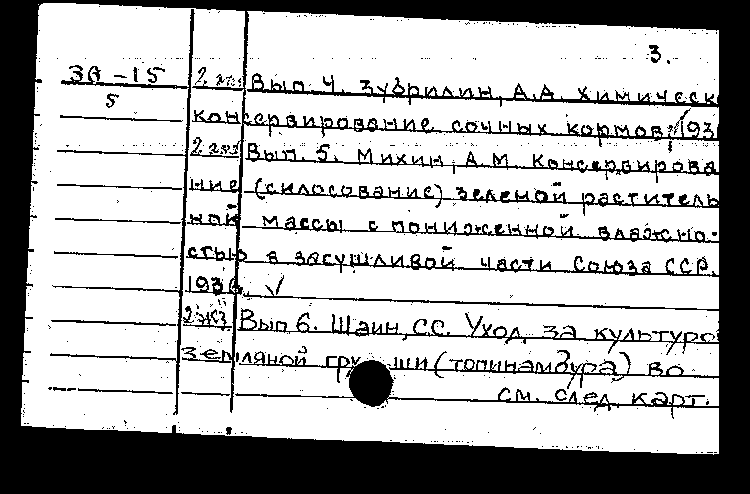 3.
36-15 2 экз Вып. 4. Зубрилин, А.А. Химическ
5
консервирование сочных кормов. 193
2 экз Вып. 5. Михин, А.М. Консервирова
ние (силосование) зеленой раститель
ной массы с пониженной влажно-
стью в засушливой части Союза ССР.
1936. √
2 экз Вып 6. Шаин, С.С. Уход за культуро
земляной гру ши (топинамбура) во
см. след. карт.